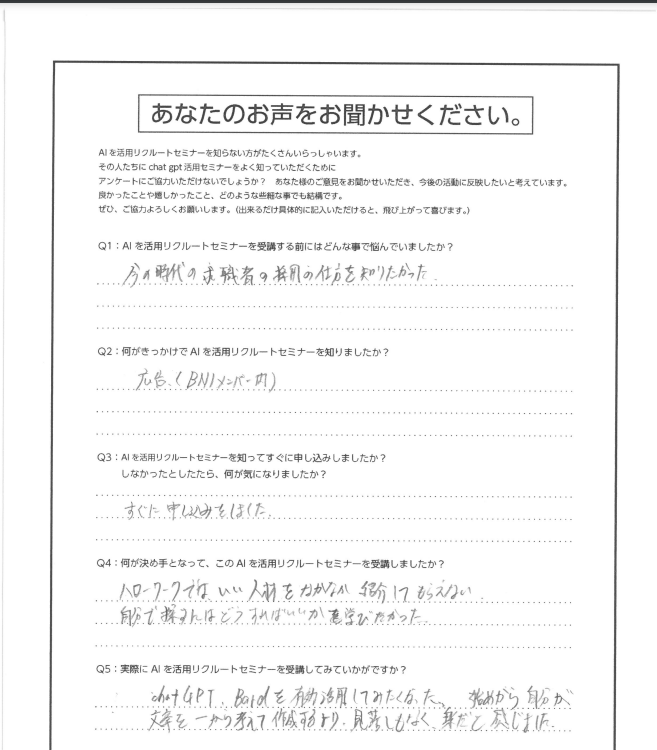 あなたのお声をお聞かせください。
AIを活用リクルートセミナーを知らない方がたくさんいらっしゃいます。
その人たちに chat gpt 活用セミナーをよく知っていただくために
アンケートにご協力いただけないでしょうか？ あなた様のご意見をお聞かせいただき、今後の活動に反映したいと考えています。
良かったことや嬉しかったこと、どのような些細な事でも結構です。
ぜひ、ご協力よろしくお願いします。（出来るだけ具体的に記入いただけると、飛び上がって喜びます。）
Q1：AIを活用リクルートセミナーを受講する前にはどんな事で悩んでいましたか？
今の時代の求職者の採用の仕方を知りたかった.
Q2：何がきっかけでAIを活用リクルートセミナーを知りましたか？
広告、(BNIメンバー内)
Q3：AIを活用リクルートセミナーを知ってすぐに申し込みしましたか？
しなかったとしたたら、何が気になりましたか？
すぐに申し込みをしました.
Q4：何が決め手となって、このAIを活用リクルートセミナーを受講しましたか？
ハローワークではいい人材をなかなか紹介してもらえない.
自分で探すにはどうすればいいか 学びたかった.
Q5：実際にAIを活用リクルートセミナーを受講してみていかがですか？
chatGPT、Bardを有効活用してみたくなった、始めから自分が
文章を一から考えて作成するより、見落しもなく、楽だと感じました.